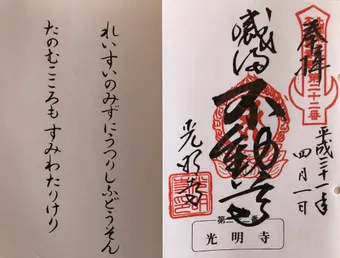 奉拝
平成三十一年
四月一日
二十二番
不動尊
光明寺
光明寺
れいすいのみずにうつりしふどうそん
たのむこころも すみわたりけり